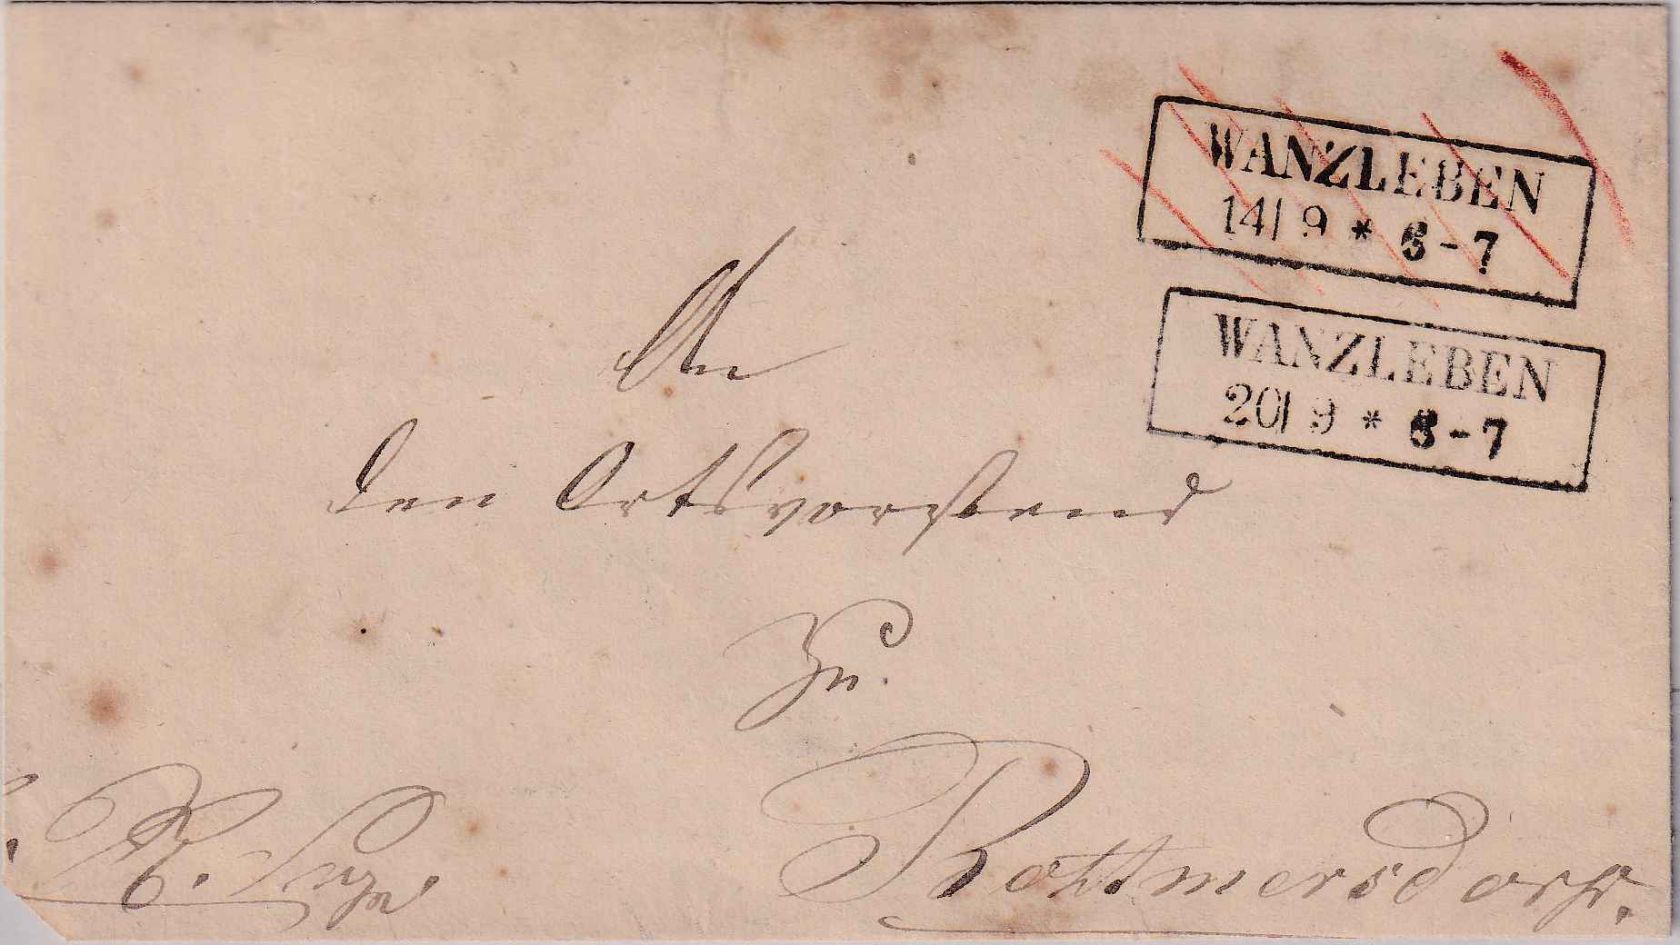 WANZLEBEN
14| 9 * 6-7
WANZLEBEN
20| 9 * 6-7
An
den Ortsvorstand
zu
Rottmersdorf.